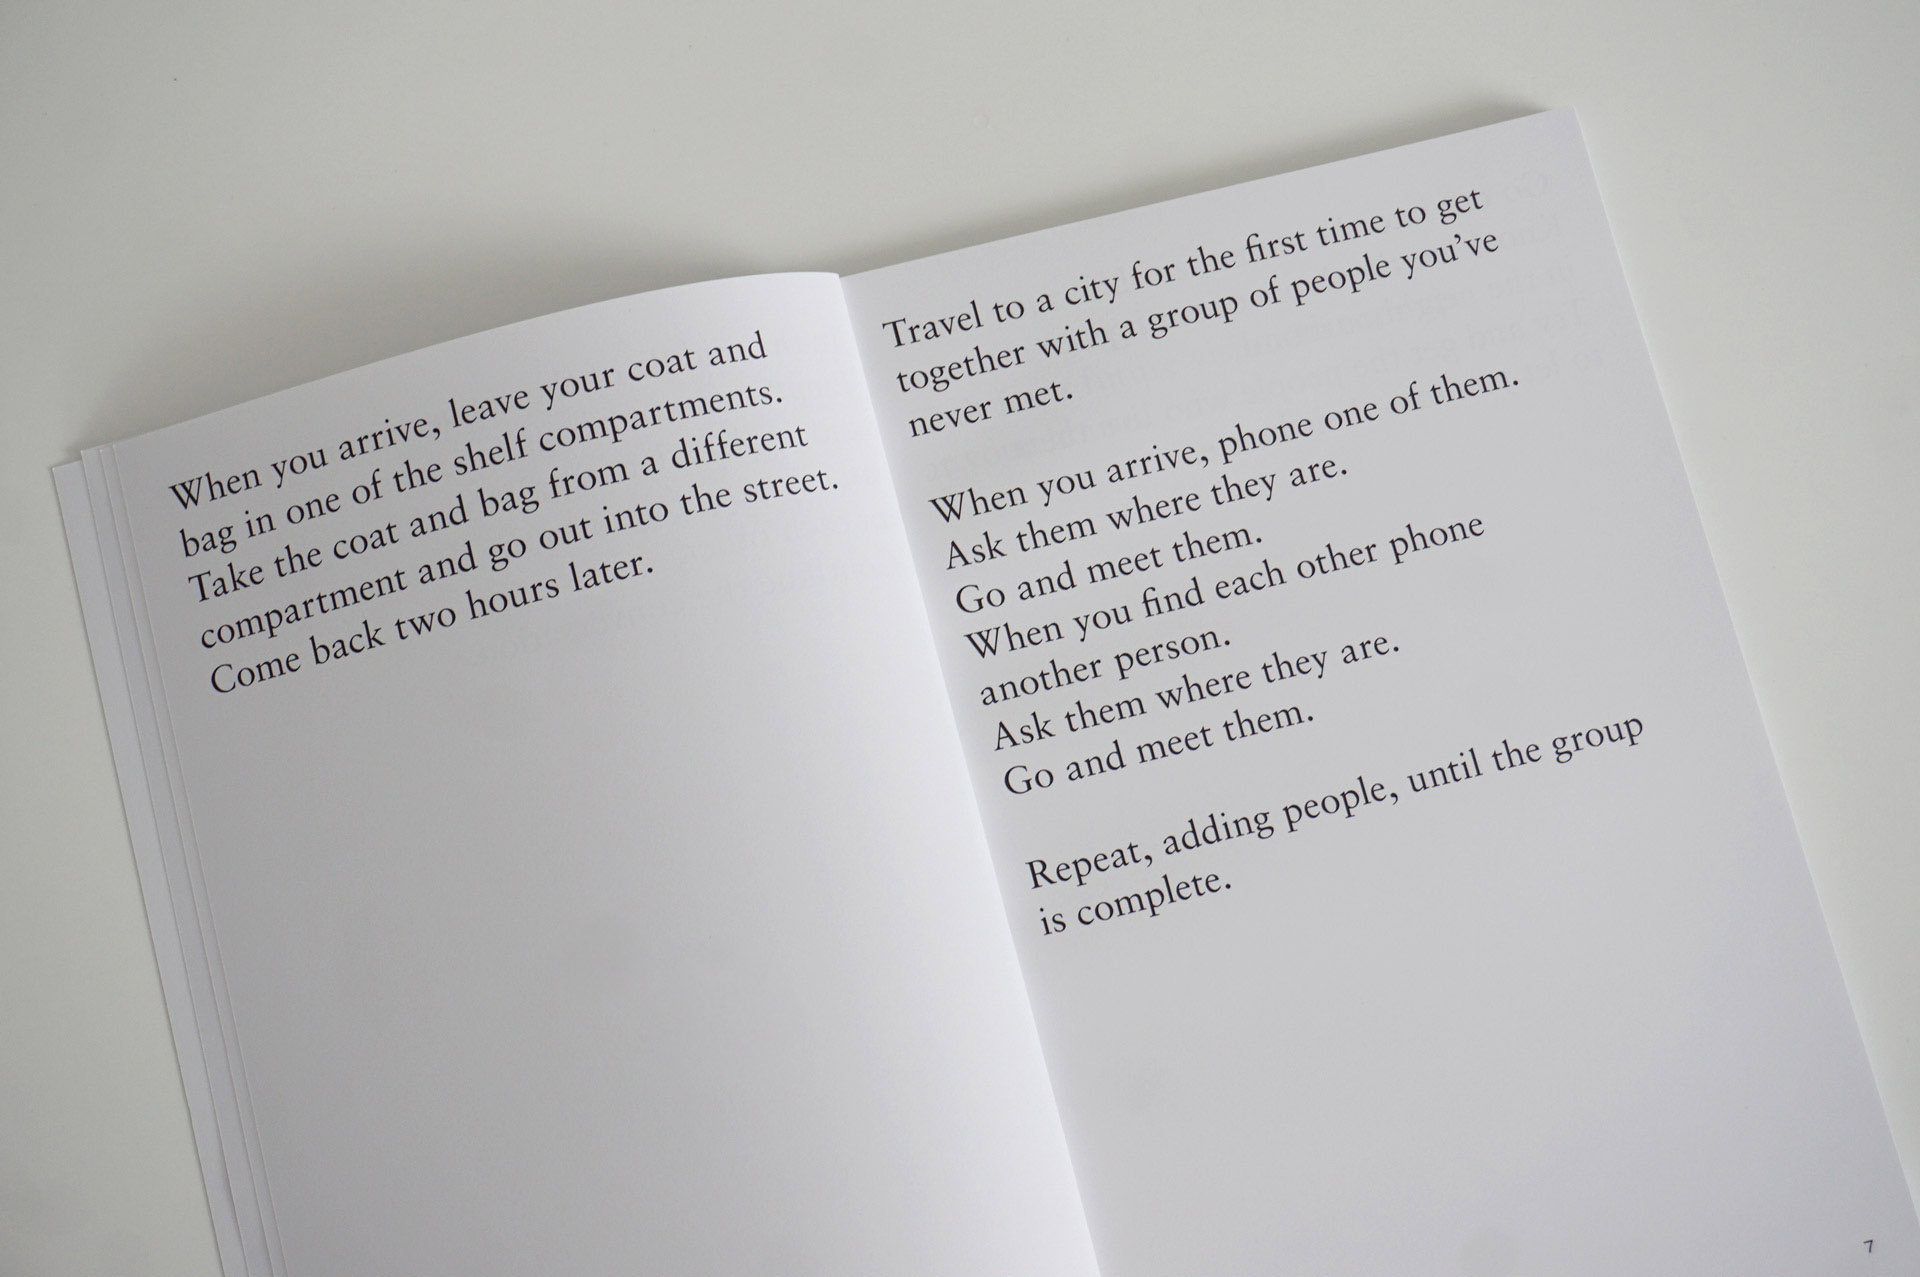 When you arrive, leave your coat and
bag in one of the shelf compartments.
Take the coat and bag from a different
compartment and go out into the street.
Come back two hours later.
Travel to a city for the first time to get
together with a group of people you’ve
never met.
When you arrive, phone one of them.
Ask them where they are.
Go and meet them.
When you find each other phone
another person.
Ask them where they are.
Go and meet them.
Repeat, adding people, until the group
is complete.
7